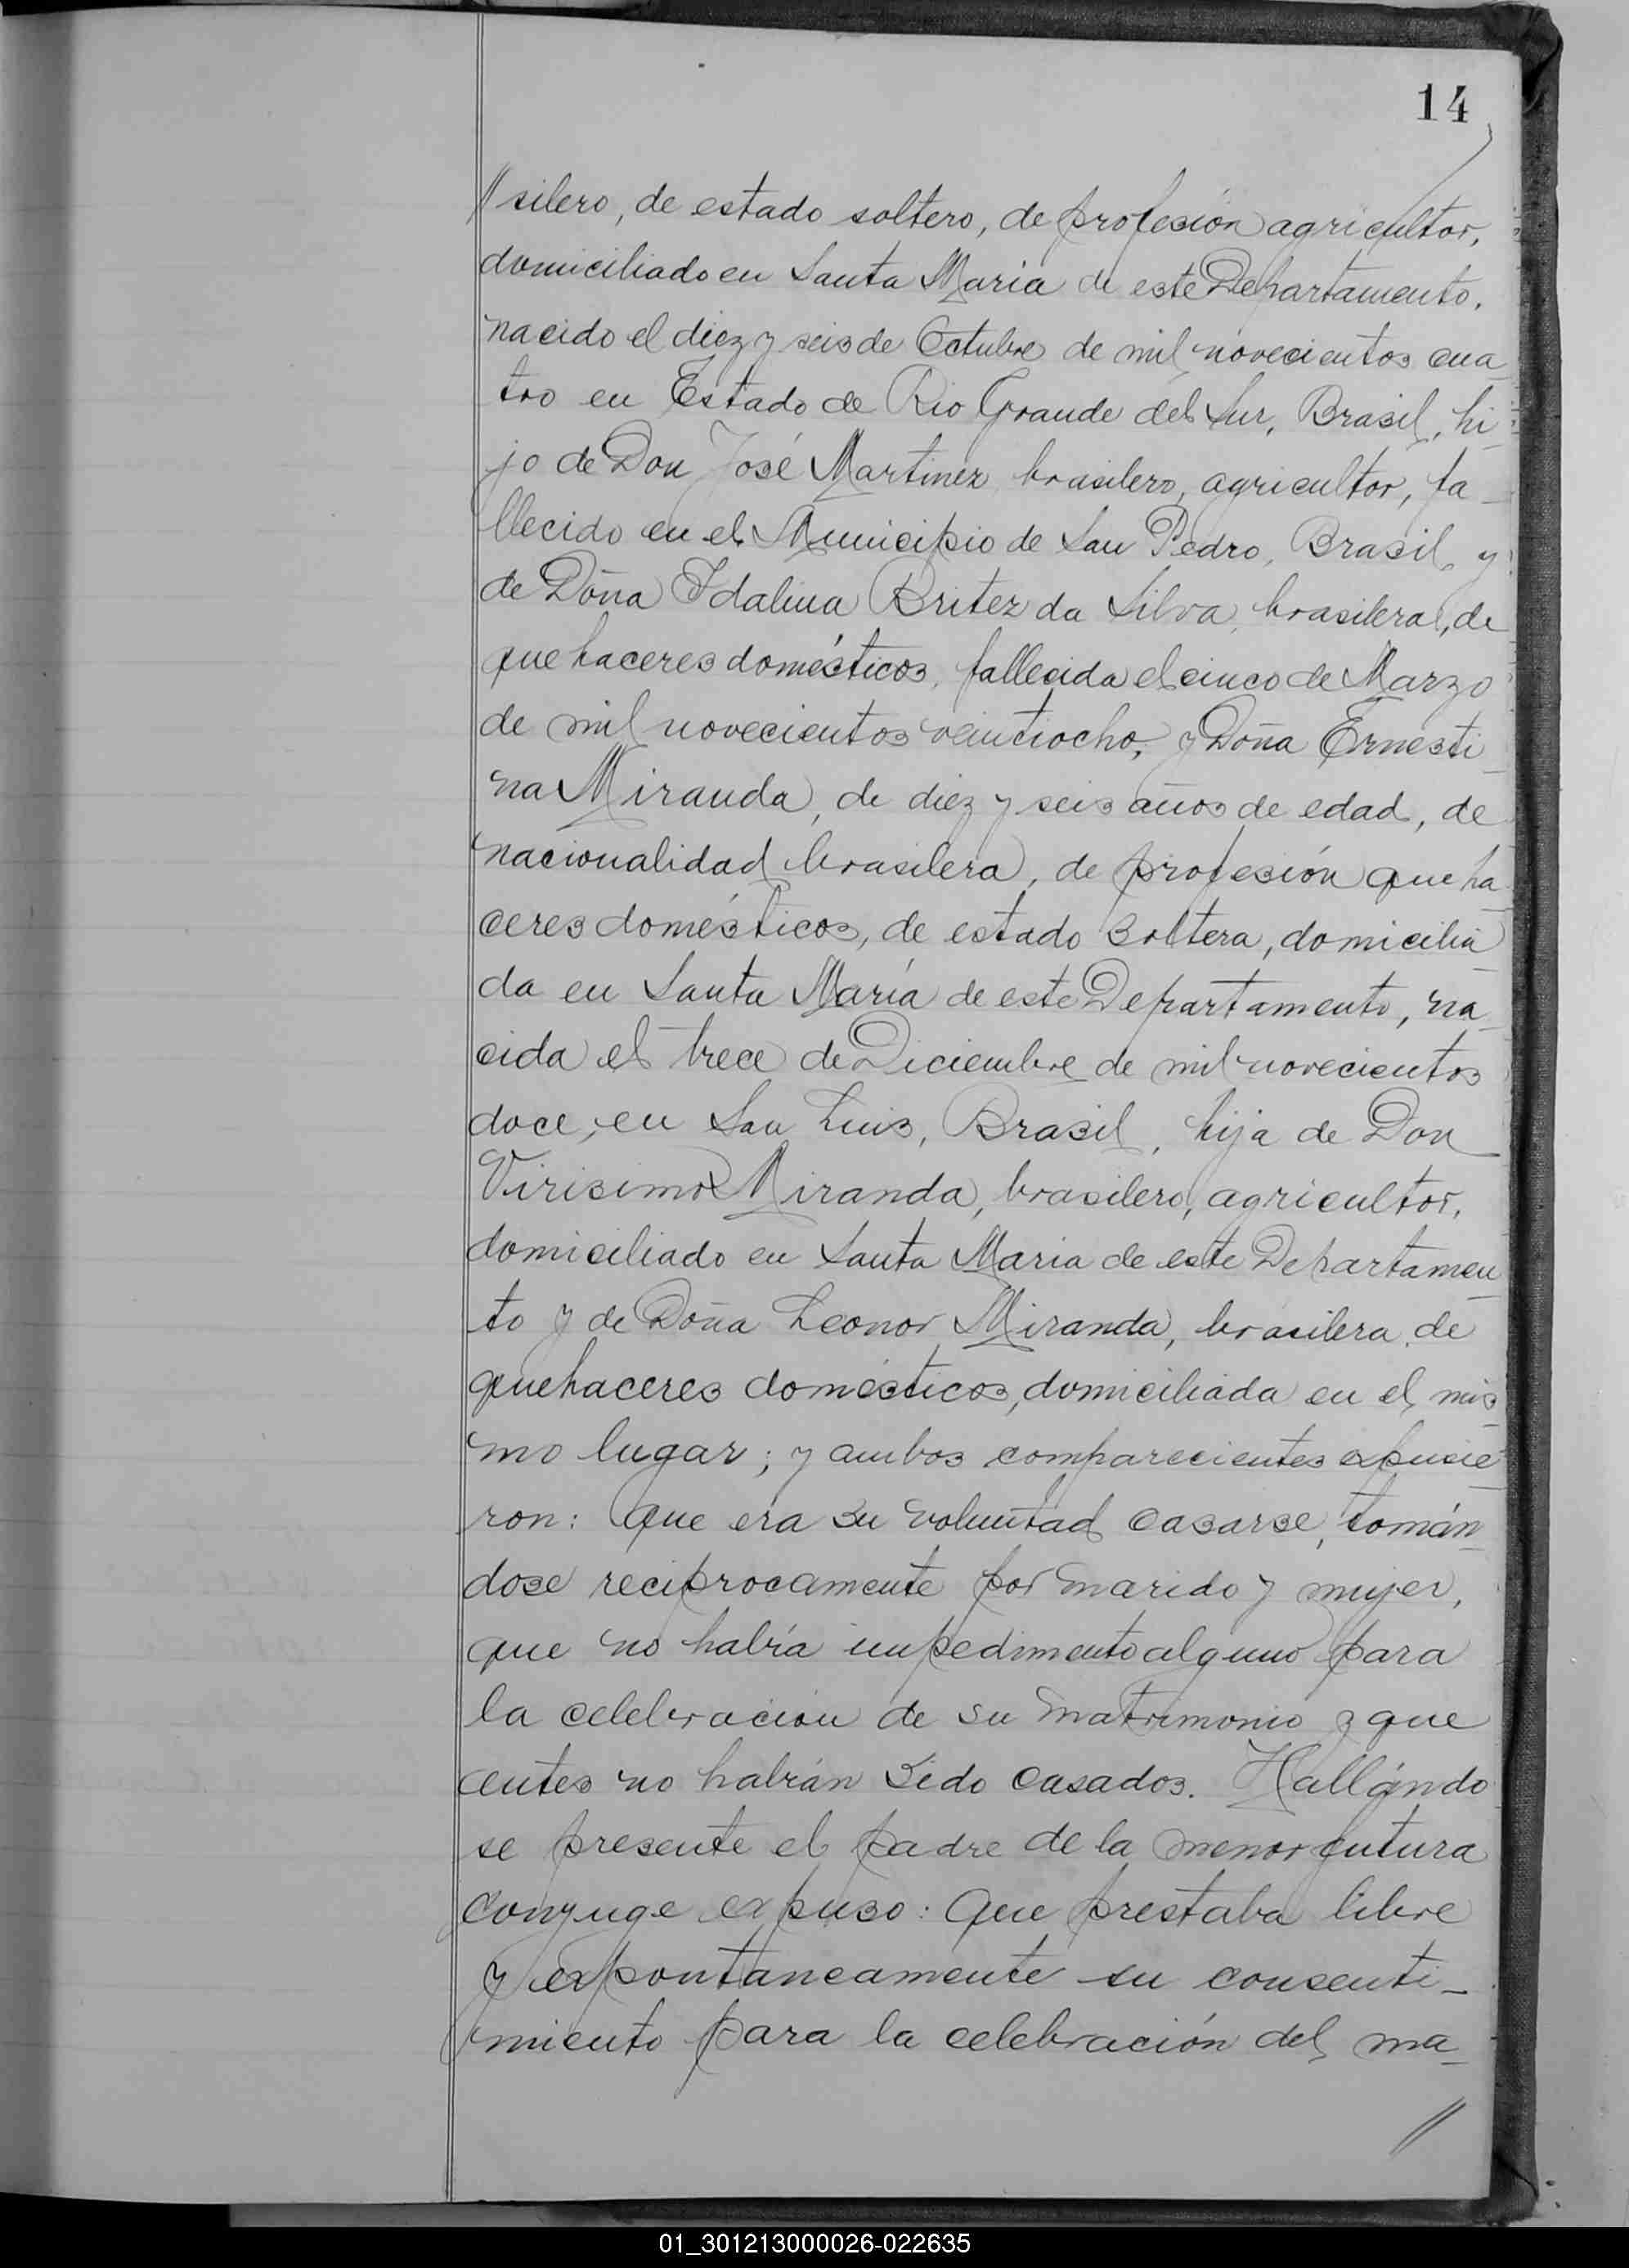 14
// silero, de estado soltero, de profesión agricultor,
domiciliado en Santa Maria de este Departamento,
nacido el diez y seis de Octubre de mil novecientos cua
tro en Estado de Rio Grande del Sur, Brasil, hi
jo de Don José Martinez brasilero, agricultor, fa-
llecido en el Municipio de San Pedro, Brasil, y
de Doña Idalina Britez da Silva, brasilera, de
quehaceres domésticos, fallecida el cinco de Marzo
de mil novecientos veintiocho, y Doña Ernesti
na Miranda, de diez y seis años de edad, de
nacionalidad brasilera, de profesión queha
ceres domésticos, de estado soltera, domicilia
da en Santa María de este Departamento, na
cida el trece de Diciembre de mil novecientos
doce, en San Luis, Brasil, hija de Don
Virisimo Miranda, brasilero, agricultor,
domiciliado en Santa Maria de este Departamen
to y de Doña Leonor Miranda, brasilera, de
quehaceres domésticos, domiciliada en el mis
mo lugar; y ambos comparecientes expusie
ron: Que era su voluntad casarse, tomán
dose reciprocamente por marido y mujer,
que no había impedimento alguno para
la celebración de su matrimonio y que
antes no habían sido casados. Hallándo
se presente el padre de la menor futura
conyuge expuso: Que prestaba libre
y expontaneamente su consenti-
miento para la celebración del ma
//
01_301213000026-022635